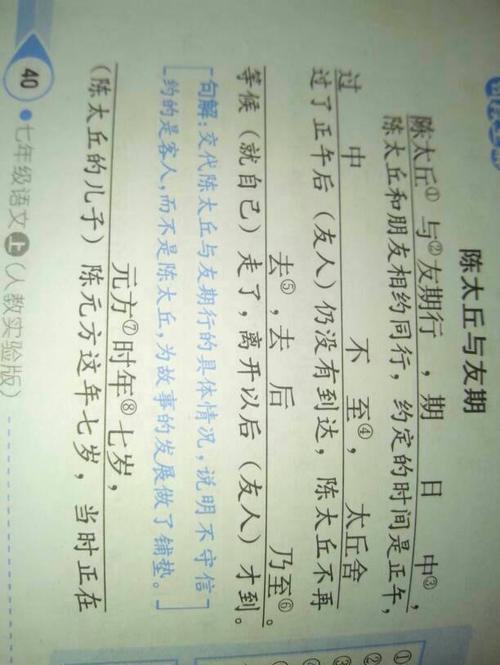 陈太丘与友期
陈太丘①与②友期行，期日中③，
陈太丘和朋友相约同行，约定的时间是正午，
过中不至④，太丘舍
过了正午后（友人）仍没有到达，陈太丘不再
去⑤，去后乃至⑥。
等候（就自己）走了，离开以后（友人）才到。
句解：交代陈太丘与友期行的具体情况，说明不守信
约的是客人，而不是陈太丘，为故事的发展做了铺垫。
元方⑦时年⑧七岁，
（陈太丘的儿子）陈元方这年七岁，当时正在
40 ●七年级语文上（人教实验版）
①
②
③